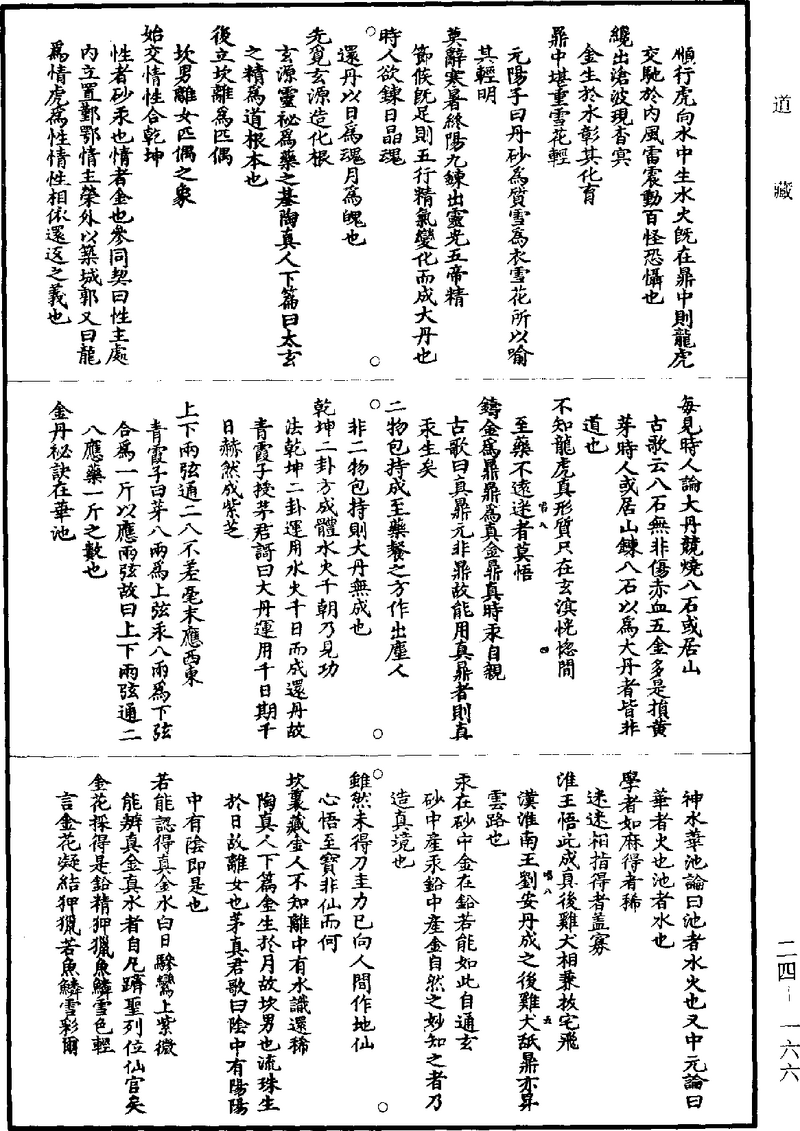 道藏
順行虎向水中生水火既在鼎中則龍虎
交馳於內風雷震動百怪恐懾也
纔出滄波現杳冥
金生於水彰其化育
鼎中堪重雪花輕
元陽子曰丹砂為質雪為衣雪花所以喻
其輕明
莫辭寒暑終陽九鍊出靈光五帝精
節候既足則五行精氣變化而成大丹也
時人欲鍊日晶魂
還丹以日為魂月為魄也
先覓玄源造化根
玄源靈祕為藥之基陶真人下篇曰太玄
之精為道根本也
後立坎離為匹偶
坎男離女匹偶之象
始交情性合乾坤
性者砂汞也情者金也參同契曰性主處
內立置鄞鄂情主榮外以築城郭又曰龍
為情虎為性情性相依還返之義也
每見時人論大丹競燒八石或居山
古歌云八石無非傷赤血五金多是損黃
芽時人或居山鍊八石以為大丹者皆非
道也
不知龍虎真形質只在玄溟恍惚間
至藥不遠迷者莫悟
鑄金為鼎鼎為真金鼎真時汞自親
古歌曰真鼎元非鼎故能用真鼎者則真
汞生矣
二物包持成至藥餐之方作出塵人
非二物包持則大丹無成也
乾坤二卦方成體水火千朝乃見功
法乾坤二卦運用水火千日而成還丹故
青霞子授茅君謌曰大丹運用千日期千
日赫然成紫芝
上下兩弦通二八不差毫末應西東
青霞子曰芽八兩為上弦汞八兩為下弦
合為一斤以應兩弦故曰上下兩弦通二
八應藥一斤之數也
金丹祕訣在華池
神水華池論曰池者水火也又中元論曰
華者火也池者水也
學者如麻得者稀
迷迷相指得者蓋寡
淮王悟此成真後雞犬相兼拔宅飛
漢淮南王劉安丹成之後雞犬舐鼎亦昇
雲路也
汞在砂中金在鉛若能如此自通玄
砂中產汞鉛中產金自然之妙知之者乃
造真境也
雖然未得刀圭力已向人間作地仙
心悟至寶非仙而何
坎裏藏金人不知離中有水識還稀
陶真人下篇金生於月故坎男也流珠生
於日故離女也茅真君歌曰陰中有陽陽
中有陰即是也
若能認得真金水白日驂鸞上紫微
能辨真金真水者自凡躋聖列位仙官矣
金花採得是鉛精狎獵魚鱗雪色輕
言金花凝結狎獵若魚鱗雪彩爾
二四—一六六